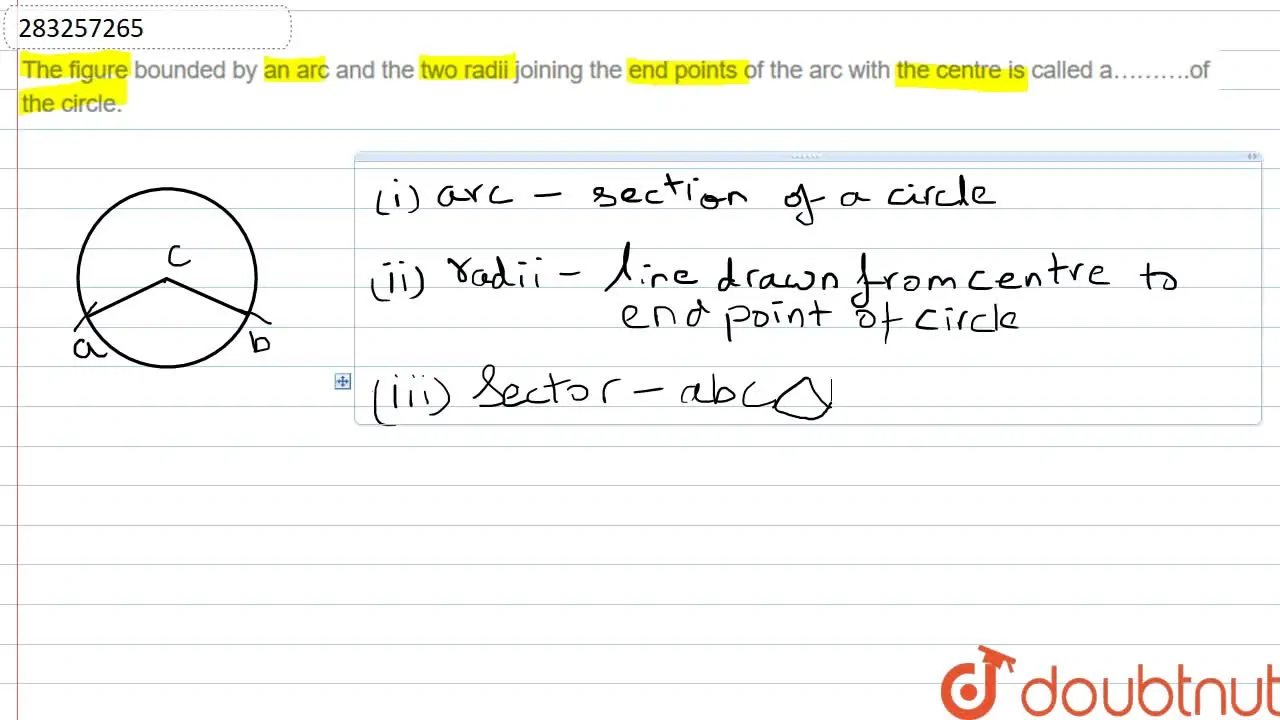 283257265
The figure bounded by an arc and the two radii joining the end points of the arc with the centre is called a……….of
the circle.
(i) arc - section of a circle
c
(ii) radii - line drawn from centre to
end point of circle
a
b
(iii) Sector - abc
doubtnut